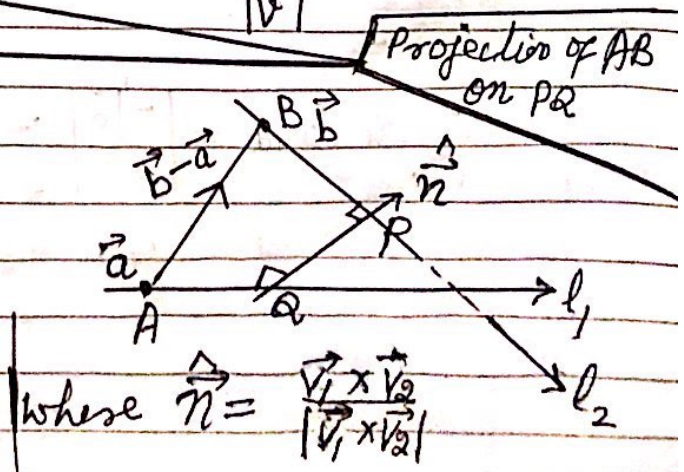 |V|
Projection of AB
on PQ
B b⃗
b⃗-a⃗
n̂⃗
a⃗
P
A
Q
l₁
l₂
where n̂⃗ = (V⃗₁ × V⃗₂) / |V⃗₁ × V⃗₂|